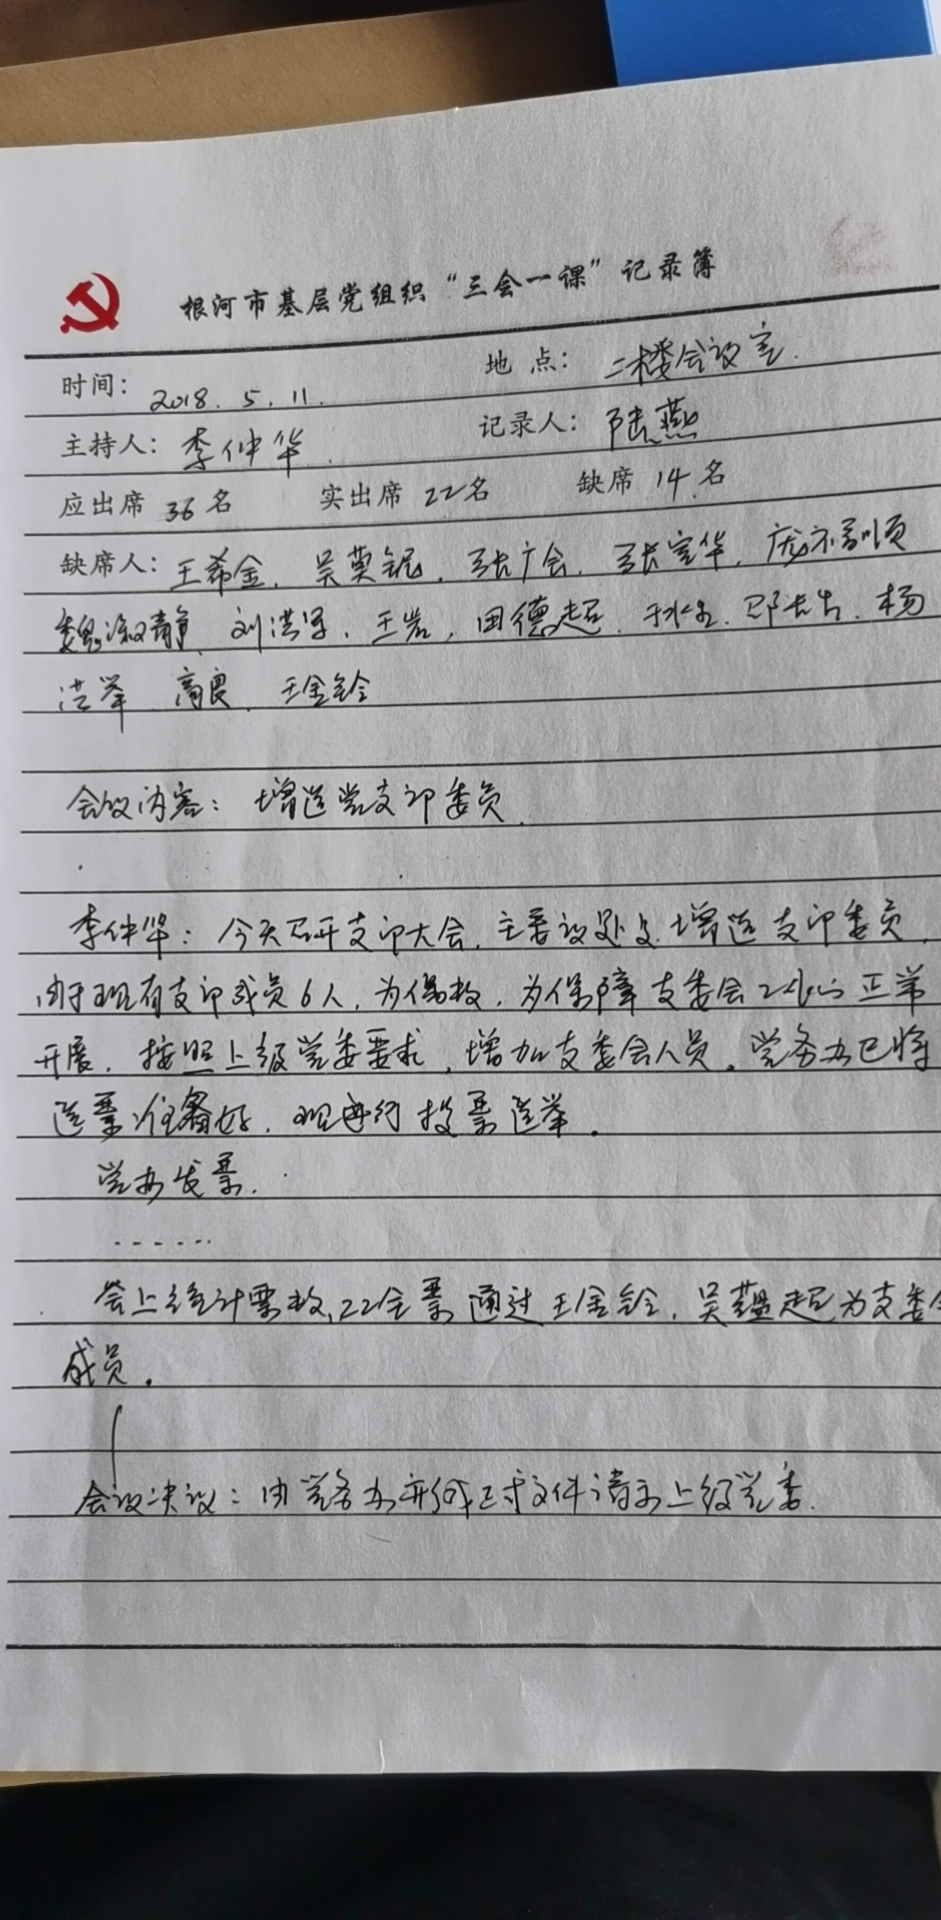 根河市基层党组织“三会一课”记录簿
时间: 2018.5.11. 地点: 二楼会议室.
主持人: 李仲华. 记录人: 陆燕
应出席 36名 实出席 22名 缺席 14名
缺席人: 王希金. 吴 张广会. 张宝华.
魏淑静. 刘洪军. 王岩, 田德超. 杨
洪举 高良. 王金铃
会议内容: 增选党支部委员.
李仲华: 今天召开支部大会. 主要议处是增选支部委员,
由于现有支部成员6人, 为保 为保障支委会工作的正常
开展. 按照上级党委要求, 增加支委会人员. 党务办已将
选票准备好. 现进行投票选举.
党办发票.
......
会上统计票数, 22全票通过王金铃. 吴蕴超为支委会
成员.
会议决议: 由党务办形成正式文件请示上级党委.